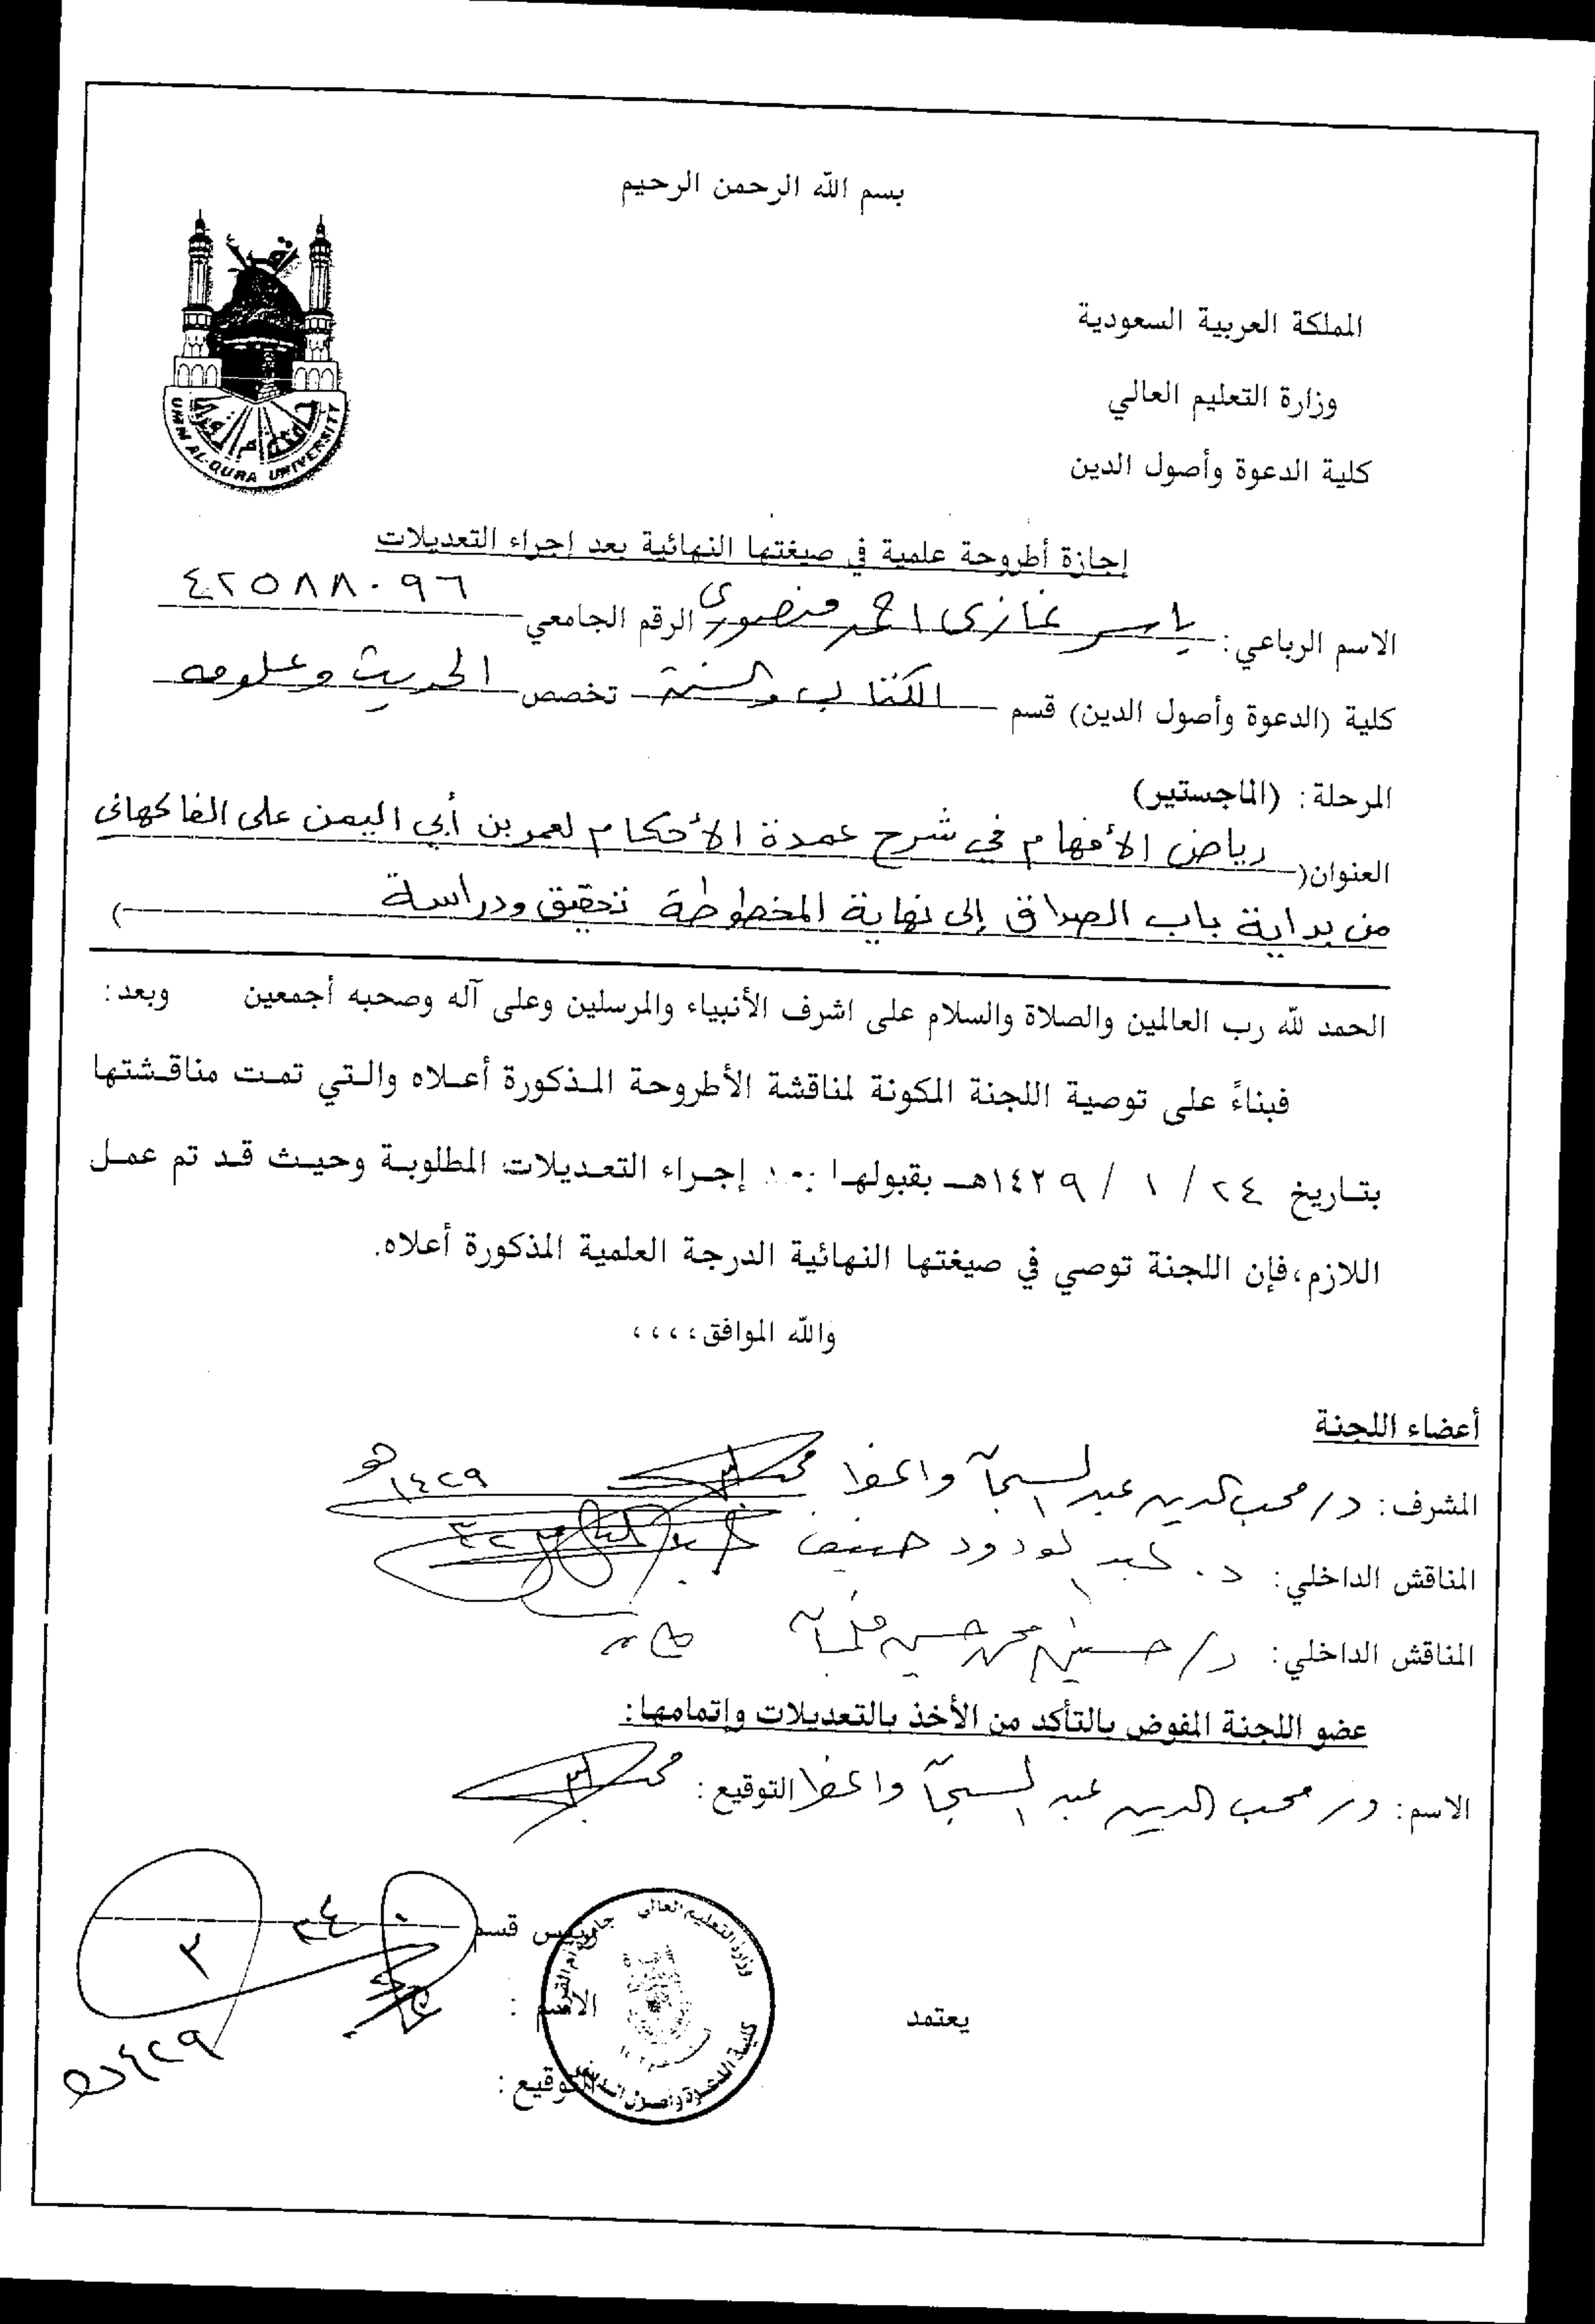 بسم الله الرحمن الرحيم
المملكة العربية السعودية
وزارة التعليم العالي
كلية الدعوة وأصول الدين
UMM AL-QURA UNIVERSITY
إجازة أطروحة علمية في صيغتها النهائية بعد إجراء التعديلات
الاسم الرباعي: ياسر غازى احمد منصورى الرقم الجامعي ٤٢٥٨٨٠٩٦
كلية (الدعوة وأصول الدين) قسم الكتاب والسنة تخصص الحديث وعلومه
المرحلة: (الماجستير)
العنوان( رياض الأفهام في شرح عمدة الأحكام لعمر بن أبي اليمن على الفاكهاني
من بداية باب الصداق إلى نهاية المخطوطة تحقيق ودراسة )
الحمد لله رب العالمين والصلاة والسلام على اشرف الأنبياء والمرسلين وعلى آله وصحبه أجمعين وبعد:
فبناءً على توصية اللجنة المكونة لمناقشة الأطروحة المذكورة أعلاه والتي تمت مناقشتها
بتاريخ ٢٤ / ١ / ١٤٢٩هـ بقبولها بعد إجراء التعديلات المطلوبة وحيث قد تم عمل
اللازم،فإن اللجنة توصي في صيغتها النهائية الدرجة العلمية المذكورة أعلاه.
والله الموافق،،،،
أعضاء اللجنة
المشرف: د/ محب الدين عبد السبحان واعظ ١٤٢٩هـ
المناقش الداخلي: د. عبد الودود حنيف
المناقش الداخلي: د/ محمد حسين
عضو اللجنة المفوض بالتأكد من الأخذ بالتعديلات وإتمامها:
الاسم: د/ محب الدين عبد السبحان واعظ التوقيع:
يعتمد
رئيس قسم
الاسم :
التوقيع :
١٤٢٩هـ
وزارة التعليم العالي جامعة أم القرى
كلية الدعوة وأصول الدين